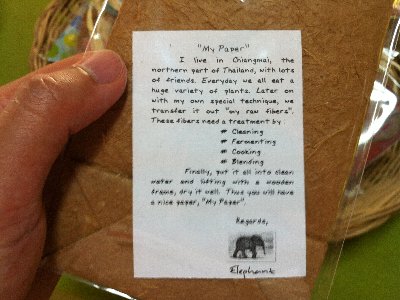 "My Paper"
I live in Chiangmai, the
northern part of Thailand, with lots
of friends. Everyday we all eat a
huge variety of plants. Later on
with my own special technique, we
transfer it out "my raw fibers".
These fibers need a treatment by :
# Cleaning
# Fermenting
# Cooking
# Blending
Finally, put it all into clean
water and lifting with a wooden
frame, dry it well. Thus you will have
a nice paper, "My Paper".
Regards,
Elephant